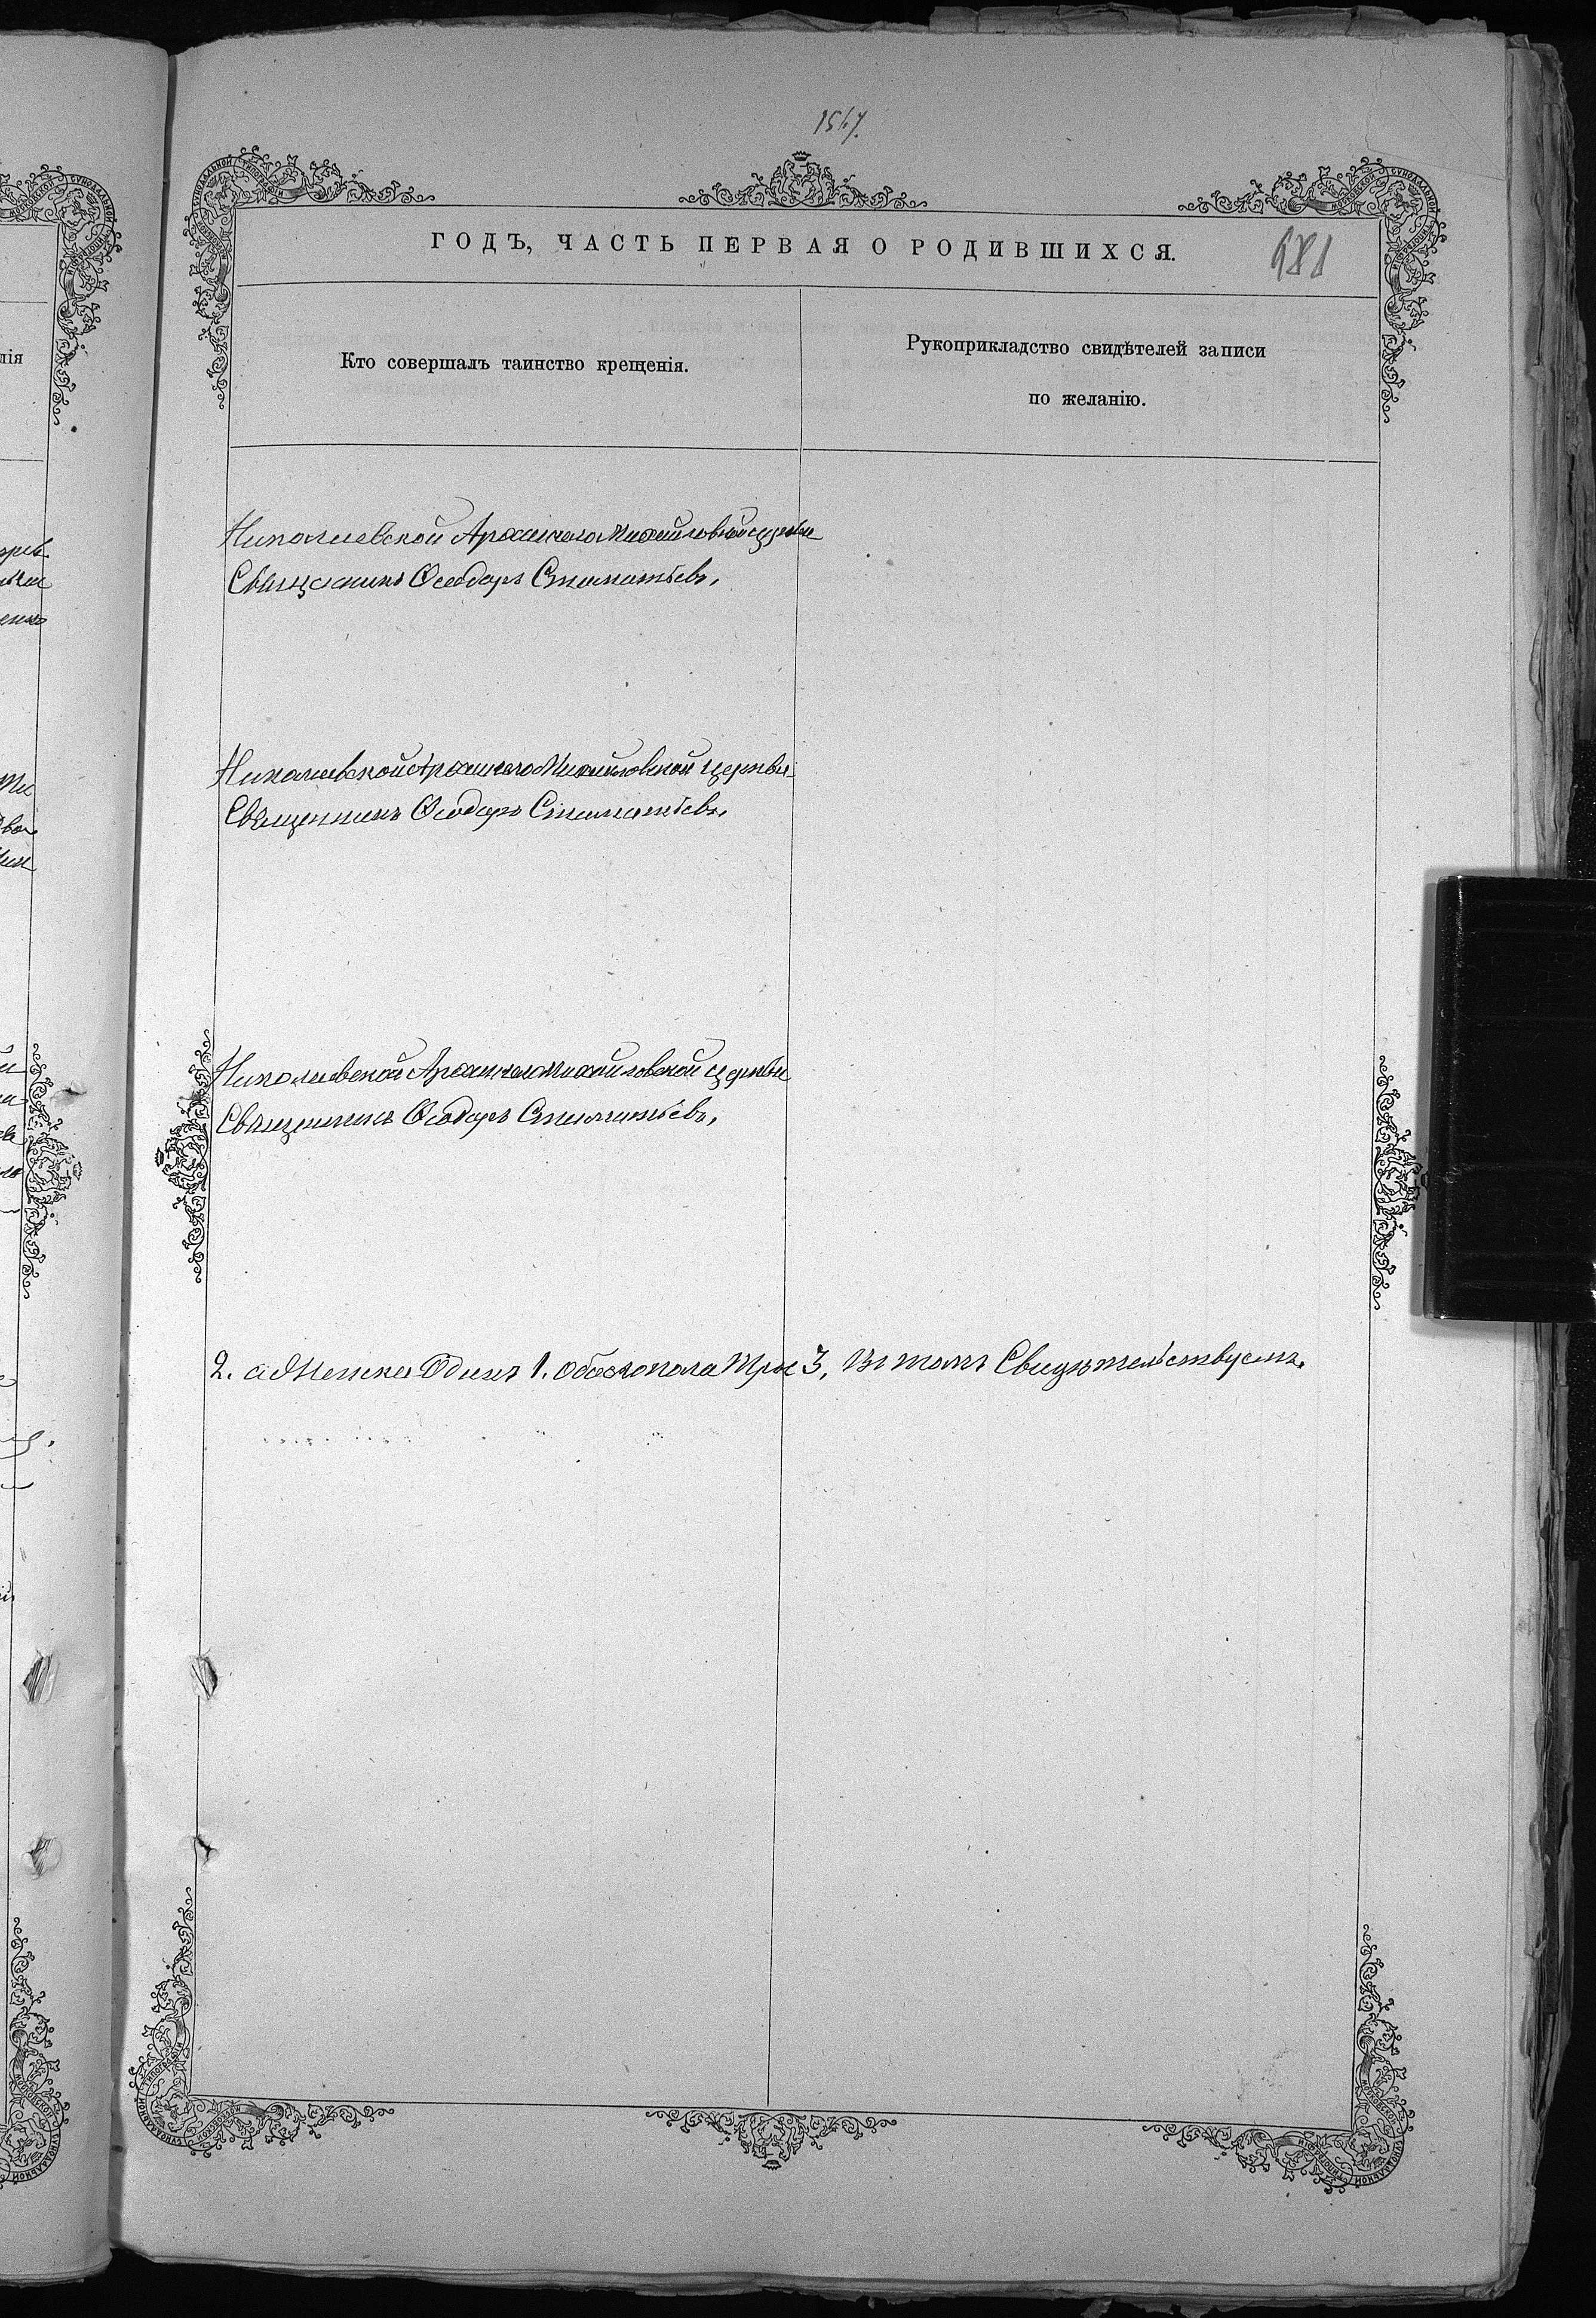 1547.
ГОДЪ, ЧАСТЬ ПЕРВАЯ О РОДИВШИХСЯ.
Кто совершалъ таинство крещенія.
Рукоприкладство свидѣтелей записи
по желанію.
Николаевской Архангело Михайловской церкви
Священникъ Ѳеодоръ Стаматьевъ,
Николаевской Архангело Михайловской церкви
Священникъ Ѳеодоръ Стаматьевъ,
Николаевской Архангело Михайловской церкви
Священникъ Ѳеодоръ Стаматьевъ,
2. а Женска Одинъ 1. обоего пола Три 3, Въ томъ Свидѣтельствуемъ.